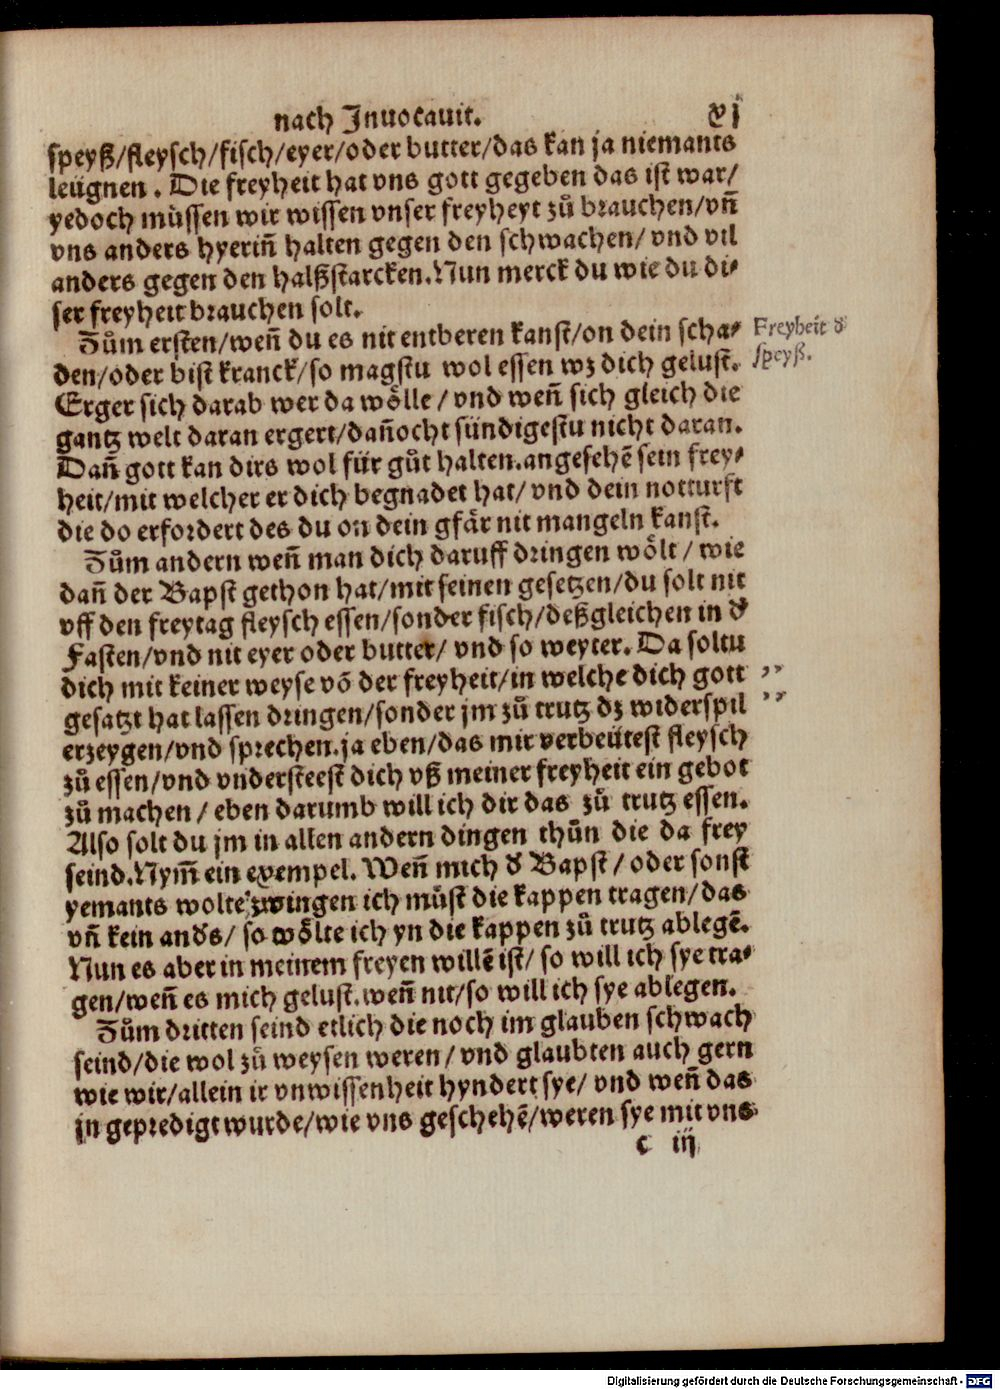 nach Inuocauit. xj
speyß/fleysch/fisch/eyer/oder butter/das kan ja niemants
leügnen. Die freyheit hat vns gott gegeben das ist war/
yedoch müssen wir wissen vnser freyheyt zů brauchen/vñ
vns anders hyeriñ halten gegen den schwachen/ vnd vil
anders gegen den halßstarcken. Nun merck du wie du di⸗
ser freyheit brauchen solt.
Zům ersten/weñ du es nit entberen kanst/on dein scha⸗
Freyheit d̕
den/oder bist kranck/so magstu wol essen wz dich gelust.
speyß.
Erger sich darab wer da woͤlle / vnd weñ sich gleich die
gantz welt daran ergert/dañocht sündigestu nicht daran.
Dañ gott kan dirs wol für gůt halten.angesehē sein frey⸗
heit/mit welcher er dich begnadet hat/ vnd dein notturft
die do erfordert des du on dein gfär nit mangeln kanst.
Zům andern weñ man dich daruff dringen woͤlt / wie
dañ der Bapst gethon hat/mit seinen gesetzen/du solt nit
vff den freytag fleysch essen/sonder fisch/deßgleichen in d̕
Fasten/vnd nit eyer oder butter/ vnd so weyter. Da soltu
dich mit keiner weyse vō der freyheit/in welche dich gott
gesatzt hat lassen dringen/sonder jm zů trutz dz widerspil
erzeygen/vnd sprechen.ja eben/das mir verbeütest fleysch
zů essen/vnd vndersteest dich vß meiner freyheit ein gebot
zů machen / eben darumb will ich dir das zů trutz essen.
Also solt du jm in allen andern dingen thůn die da frey
seind. Nym̃ ein exempel. Weñ mich d̕ Bapst/ oder sonst
yemants wolte zwingen ich můst die kappen tragen/das
vñ kein and̕s/ so woͤlte ich yn die kappen zů trutz ablegē.
Nun es aber in meinem freyen willē ist/ so will ich sye tra⸗
gen/weñ es mich gelust.weñ nit/so will ich sye ablegen.
Zům dritten seind etlich die noch im glauben schwach
seind/die wol zů weysen weren/ vnd glaubten auch gern
wie wir/allein ir vnwissenheit hyndert sye/ vnd weñ das
jn gepredigt wurde/wie vns geschehē/weren sye mit vns
c iij
Digitalisierung gefördert durch die Deutsche Forschungsgemeinschaft - DFG